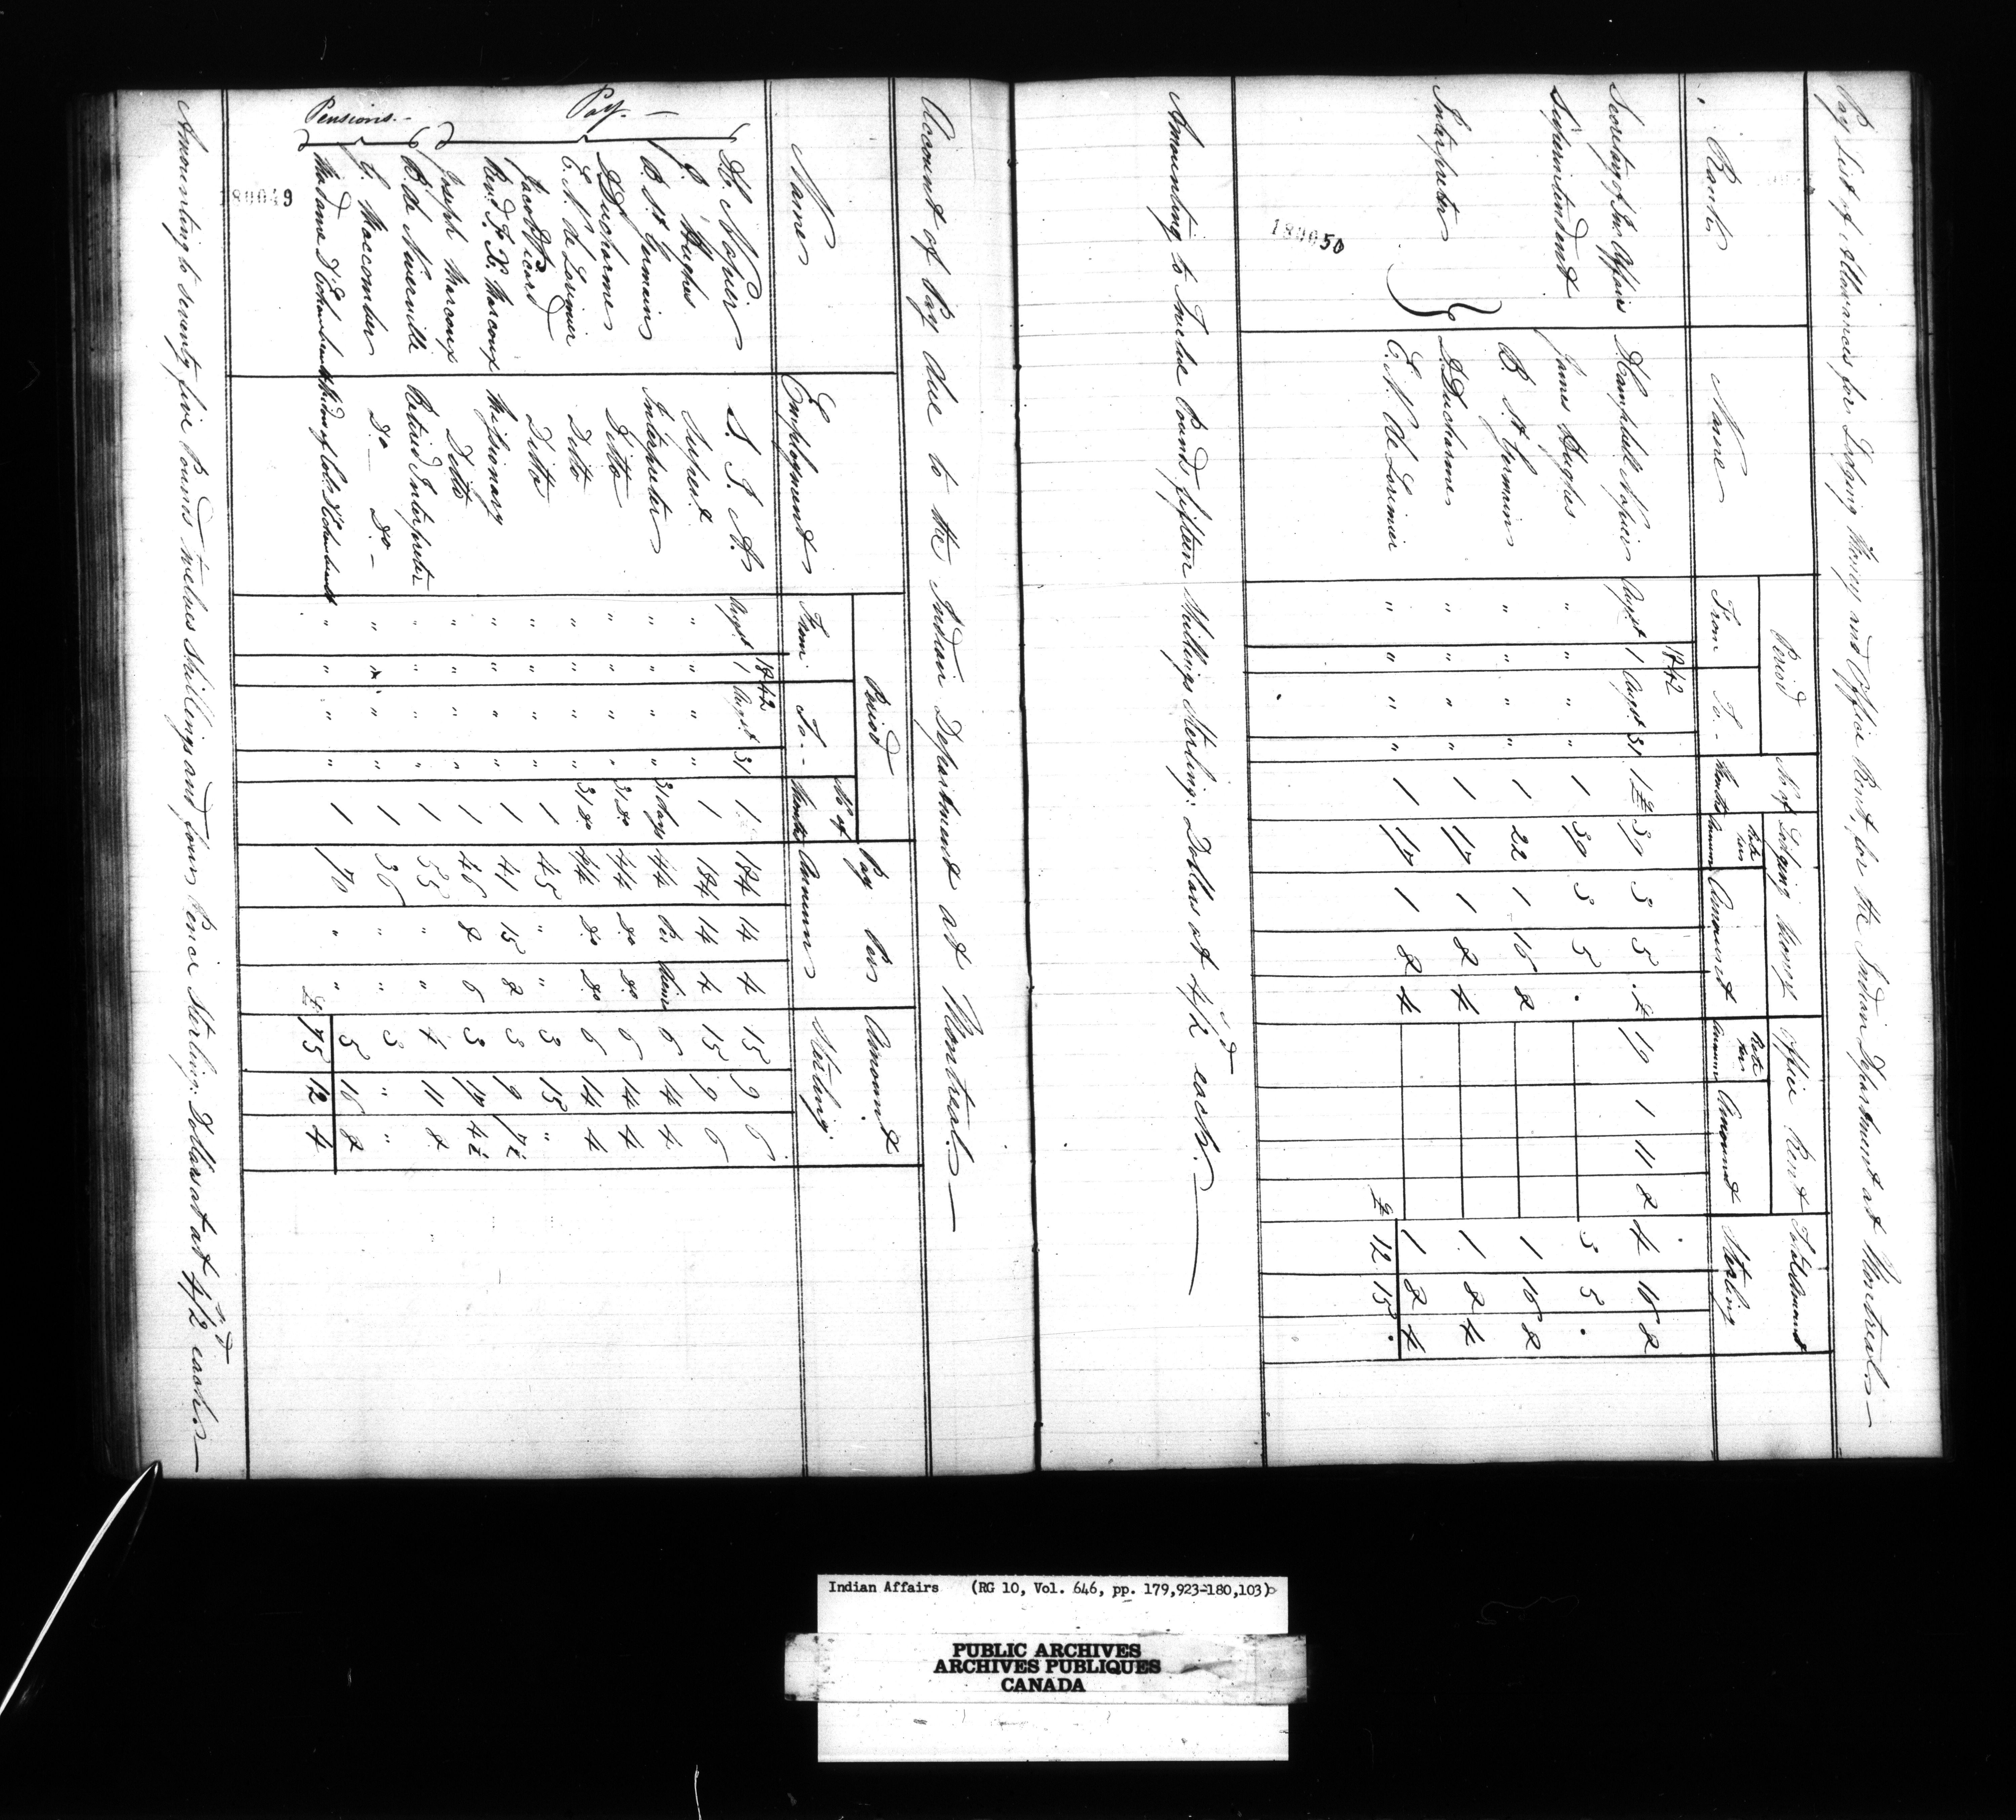 Account of Pay due to the Indian Department at Montreal.
Names Employment Period No. of Months Pay Per Annum Amount Sterling.
From To
1842
Pay.
D. C. Napier S. I. A. Augst 1 Augst 31 1 184 14 4 15 9 6
J. Hughes Supert. " " " " 1 184 14 4 15 9 6
B. St. Germain Interpreter " " " " 31 days 4/4 Per Diem 6 4 4
D. Ducharme Ditto " " " " 31 do. 4/4 do. do. 6 14 4
E. N. de Lorimier Ditto " " " " 31 do. 4/4 do. do. 6 14 4
Jacob Picard Ditto " " " " 1 45 " " 3 15 "
Revd. F. X. Marcoux Missionary " " " " 1 41 15 8 3 9 7½
Joseph Marcoux Ditto " " " " 1 46 8 6 3 17 4½
Pensions.
B. de Niverville Retired Interpreter " " " " 1 55 " " 4 11 8
G. Maccomber Do. Do. " " " " 1 36 " " 3 " "
Madame D'Eschambault Widow of Col. D'Eschambault " " " " 1 70 " " 5 16 8
£ 75 12 4
Amounting to seventy five Pounds twelve shillings and four Pence Sterling: Dollars at 4s/2d each.
180049
Pay List of Allowances for Lodging Money and Office Rent, for the Indian Department at Montreal.
Rank Name Period No. of Months Lodging Money Office Rent Total Amount Sterling
From To Rate per Annum Amount Rate per Annum Amount
1842
Secretary of In. Affairs D. Campbell Napier Augst 1 Augst 31 1 £ 39 3 5 . £ 19 1 11 8 4 16 8
Superintendent James Hughes " " " " 1 39 3 5 . 3 5 .
Interpreters
B. St. Germain " " " " 1 22 1 16 8 1 16 8
D. Ducharme " " " " 1 17 1 8 4 1 8 4
E. N. de Lorimier " " " " 1 17 1 8 4 1 8 4
£ 12 15 .
Amounting to Twelve Pounds, fifteen Shillings Sterling: Dollars at 4s/2d each.
180050
Indian Affairs (RG 10, Vol. 646, pp. 179,923-180,103)
PUBLIC ARCHIVES
ARCHIVES PUBLIQUES
CANADA